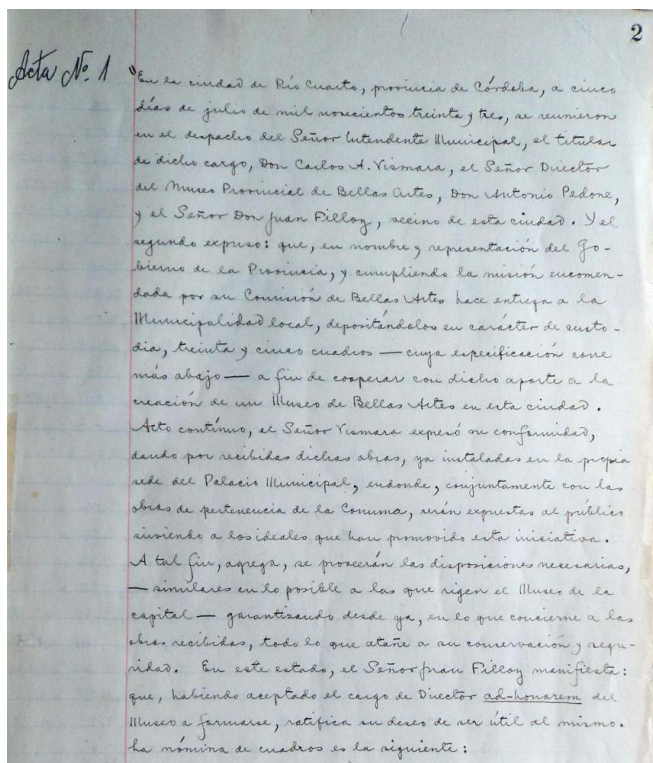 2
Acta Nº. 1
"En la ciudad de Río Cuarto, provincia de Córdoba, a cinco
días de julio de mil novecientos treinta y tres, se reunieron
en el despacho del Señor Intendente Municipal, el titular
de dicho cargo, Don Carlos A. Vismara, el Señor Director
del Museo Provincial de Bellas Artes, Don Antonio Pedone,
y el Señor Don Juan Filloy, vecino de esta ciudad. Y el
segundo expuso: que, en nombre y representación del Go-
bierno de la Provincia, y cumpliendo la misión encomen-
dada por su Comisión de Bellas Artes hace entrega a la
Municipalidad local, depositándolos en carácter de custo-
dia, treinta y cinco cuadros — cuya especificación corre
más abajo — a fin de cooperar con dicho aporte a la
creación de un Museo de Bellas Artes en esta ciudad.
Acto contínuo, el Señor Vismara expresó su conformidad,
dando por recibidas dichas obras, ya instaladas en la propia
sede del Palacio Municipal, endonde, conjuntamente con las
obras de pertenencia de la Comuna, serán expuestas al público
sirviendo a los ideales que han promovido esta iniciativa.
A tal fin, agrega, se proveerán las disposiciones necesarias,
— similares en lo posible a las que rigen el Museo de la
capital — garantizando desde ya, en lo que concierne a las
obras recibidas, todo lo que atañe a su conservación y segu-
ridad. En este estado, el Señor Juan Filloy manifiesta:
que, habiendo aceptado el cargo de Director ad-honorem del
Museo a formarse, ratifica su deseo de ser útil al mismo.
La nómina de cuadros es la siguiente: